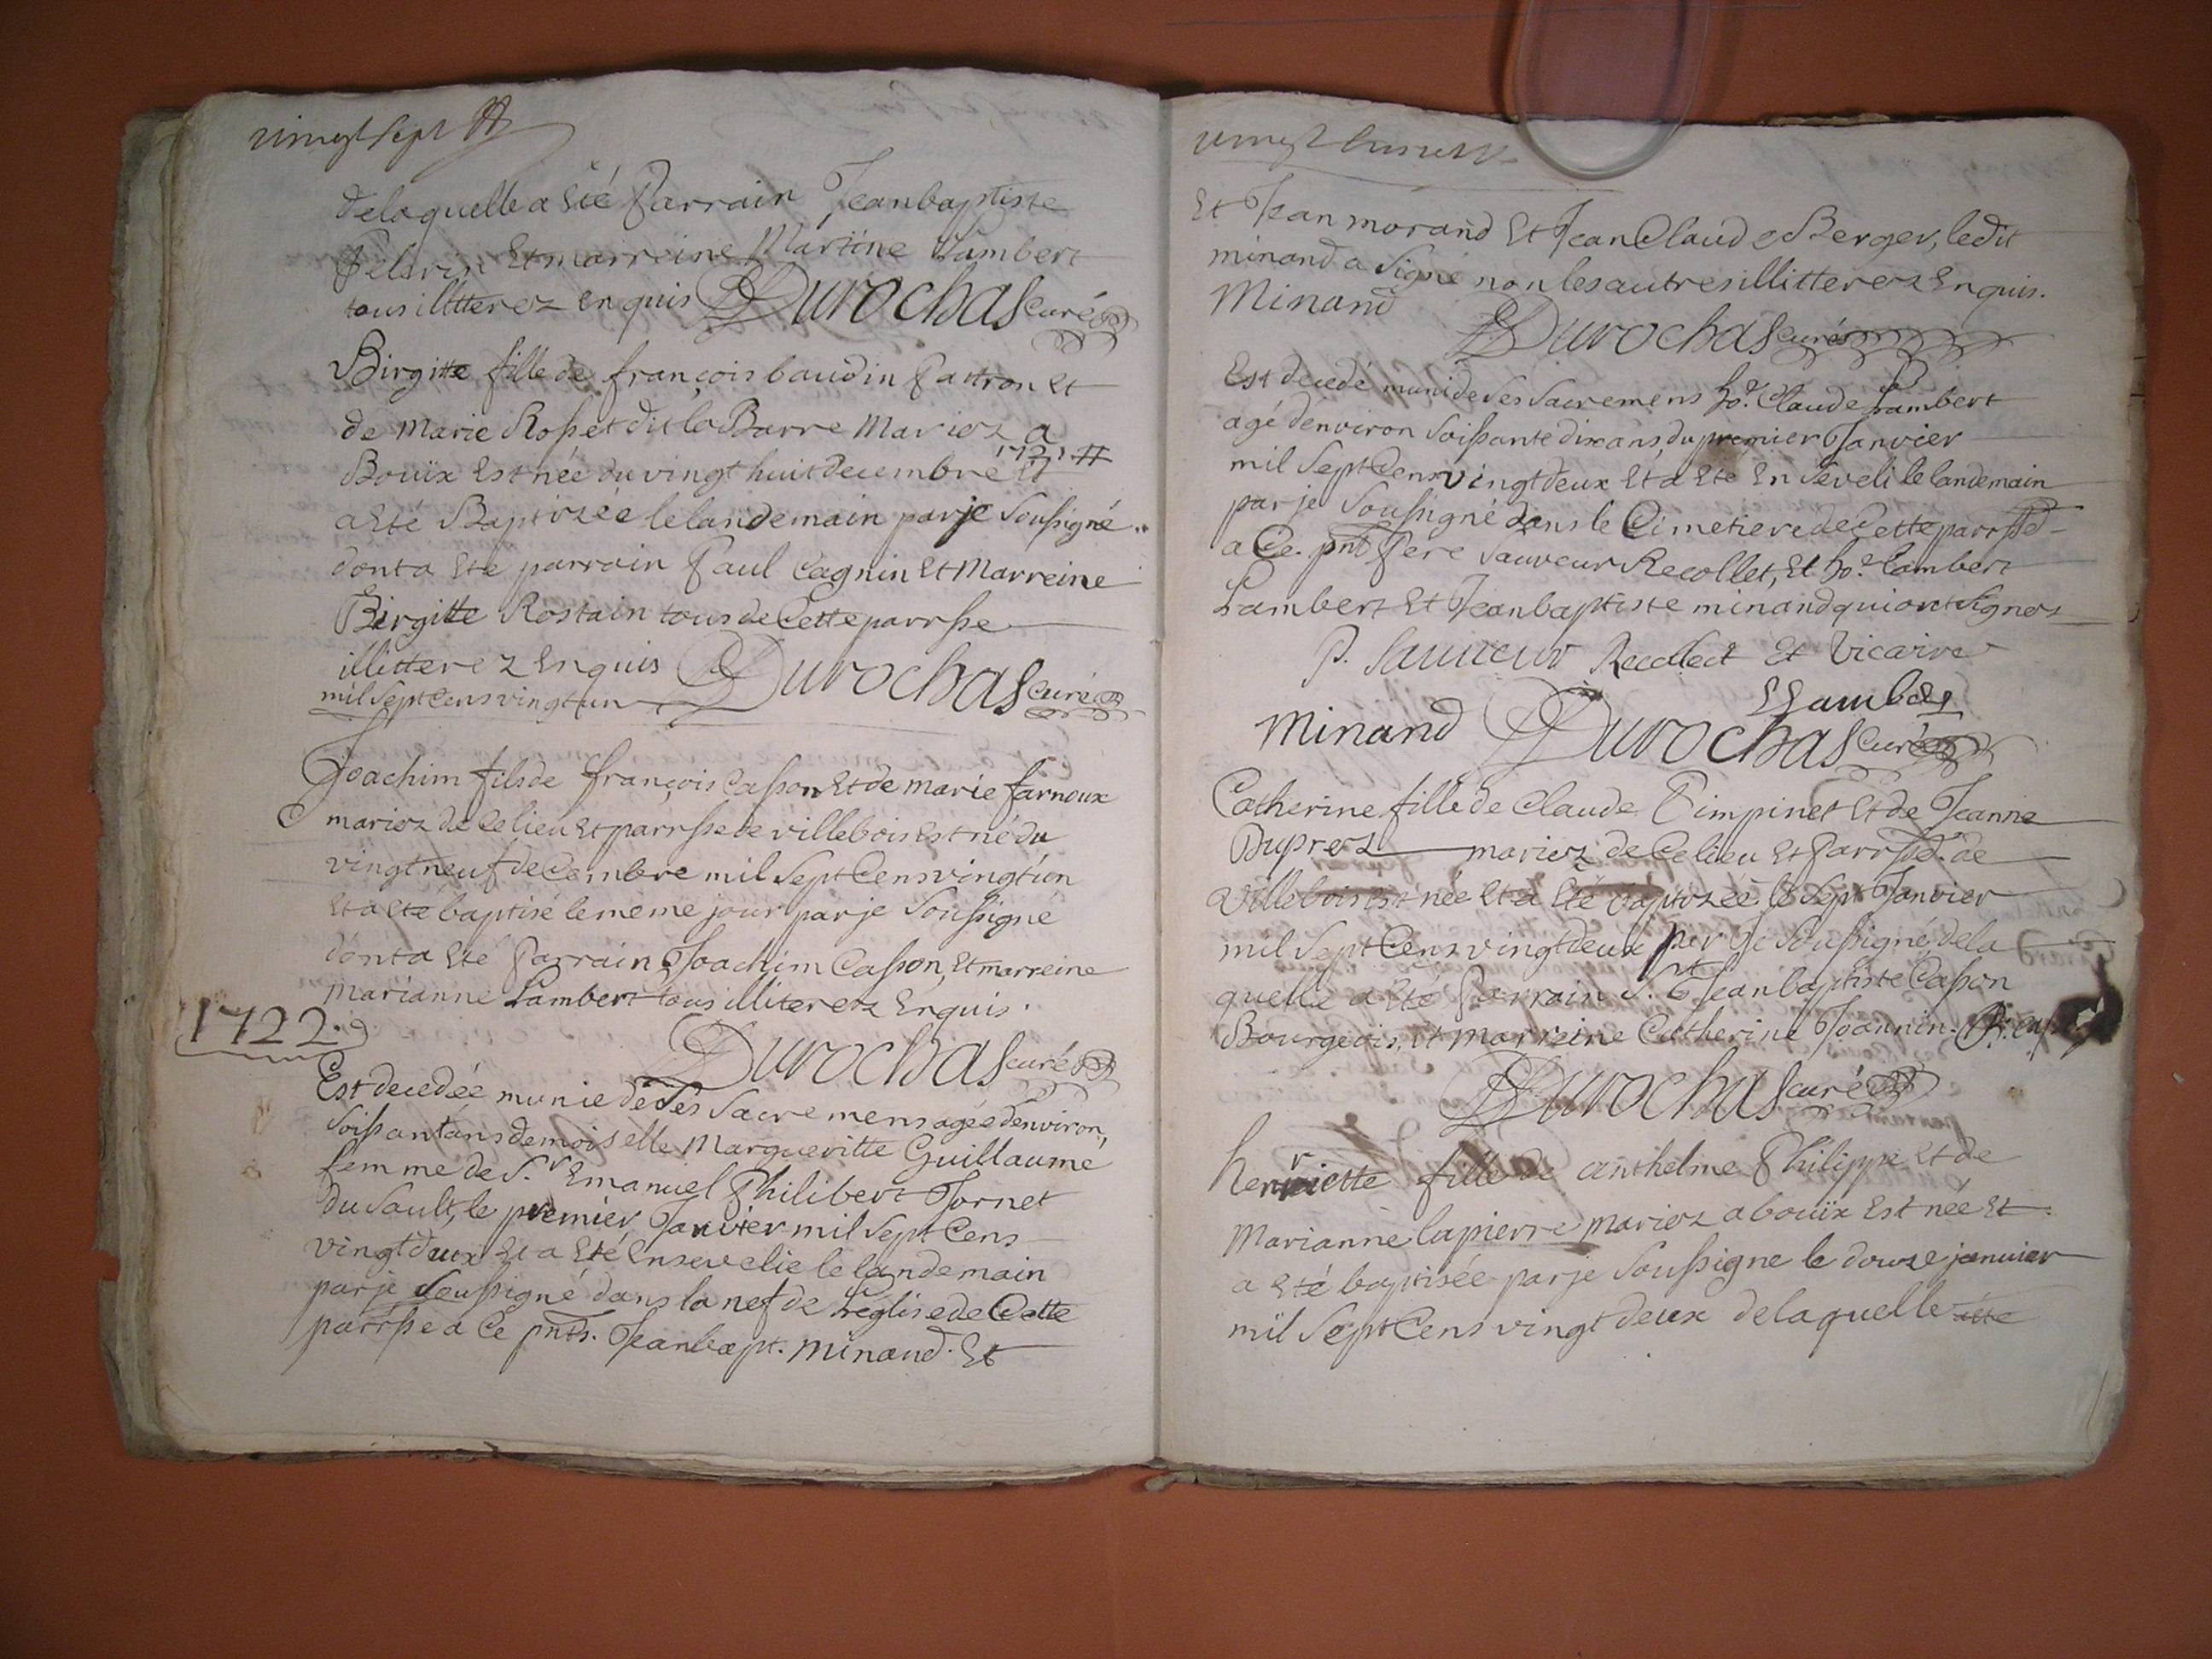 vingt sept
delaquelle a Eté Parrain Jeanbaptiste
Et marreine Martine Lambert
tous illitterez enquis Durochas curé
Birgitte fille de françois baudin Pattron Et
de Marie Rosset dit la Barre Mariez a
Bouix Est née du vingt huit decembre 1721
a Eté Baptizée le landemain par je Soussigné
dont a Eté parrain Paul Cagnin Et Marreine
Birgitte Rostain tous de Cette parrsse
illitterez Enquis Durochas curé
mil Sept Cens vingt un
Joachim fils de françois Casson Et de Marie farnoux
mariez de Ce lieu Et parrsse de villebois Est né du
vingt neuf deCembre mil Sept Cens vingt un
Et a Eté baptisé le meme jour par je Soussigné
dont a Eté Parrain Joachim Casson, Et marreine
Marianne Lambert tous illiterez Enquis.
1722.
Durochas curé
Est decedée munie de Ses Sacremens agée d'environ,
Soissant ans demoiselle Margueritte Guillaume
femme de S.r Emanuel Philibert Jornet
du Sault, le premier Janvier mil Sept Cens
vingt deux Et a Eté Ensevelie le landemain
par je Soussigné dans la nef de L'eglise de Cette
parrsse a Ce pnts. Jeanbapt. Minand. Et
vingt huit
Et Jean morand Et Jean Claude Berger, ledit
minand a Signé non les autres illitterez Enquis.
Minand
Durochas curé
Est decedé muni de Ses Sacremens ho.e Claude Lambert
agé d'environ Soissante dix ans, du premier Janvier
mil Sept Cens vingt deux Et a Eté En Seveli le landemain
par je Soussigné dans le Cimetiere de Cette parrsse
a Ce pnt Pere Sauveur Recollet, Et ho.e Lambert
Lambert Et Jeanbaptiste minand qui ont Signez
P. Sauveur Recolect Et Vicaire
Lambert
Minand Durochas Curé
Catherine fille de Claude Pimpinet Et de Jeanne
Duprez mariez de Ce lieu Et Parrsse de
Villebois Est née Et a Eté baptizée le Sept Janvier
mil Sept Cens vingt deux par je Soussigné, dela
quelle a Eté Parrain S.r Jeanbaptiste Casson
Bourgeois, Et marreine Catherine Joannin.
Durochas curé
henriette fille de anthelme Philippe Et de
Marianne lapierre mariez a bouix Est née Et
a Eté baptisée par je Soussigne le douze janvier
mil Sept Cens vingt deux de laquelle